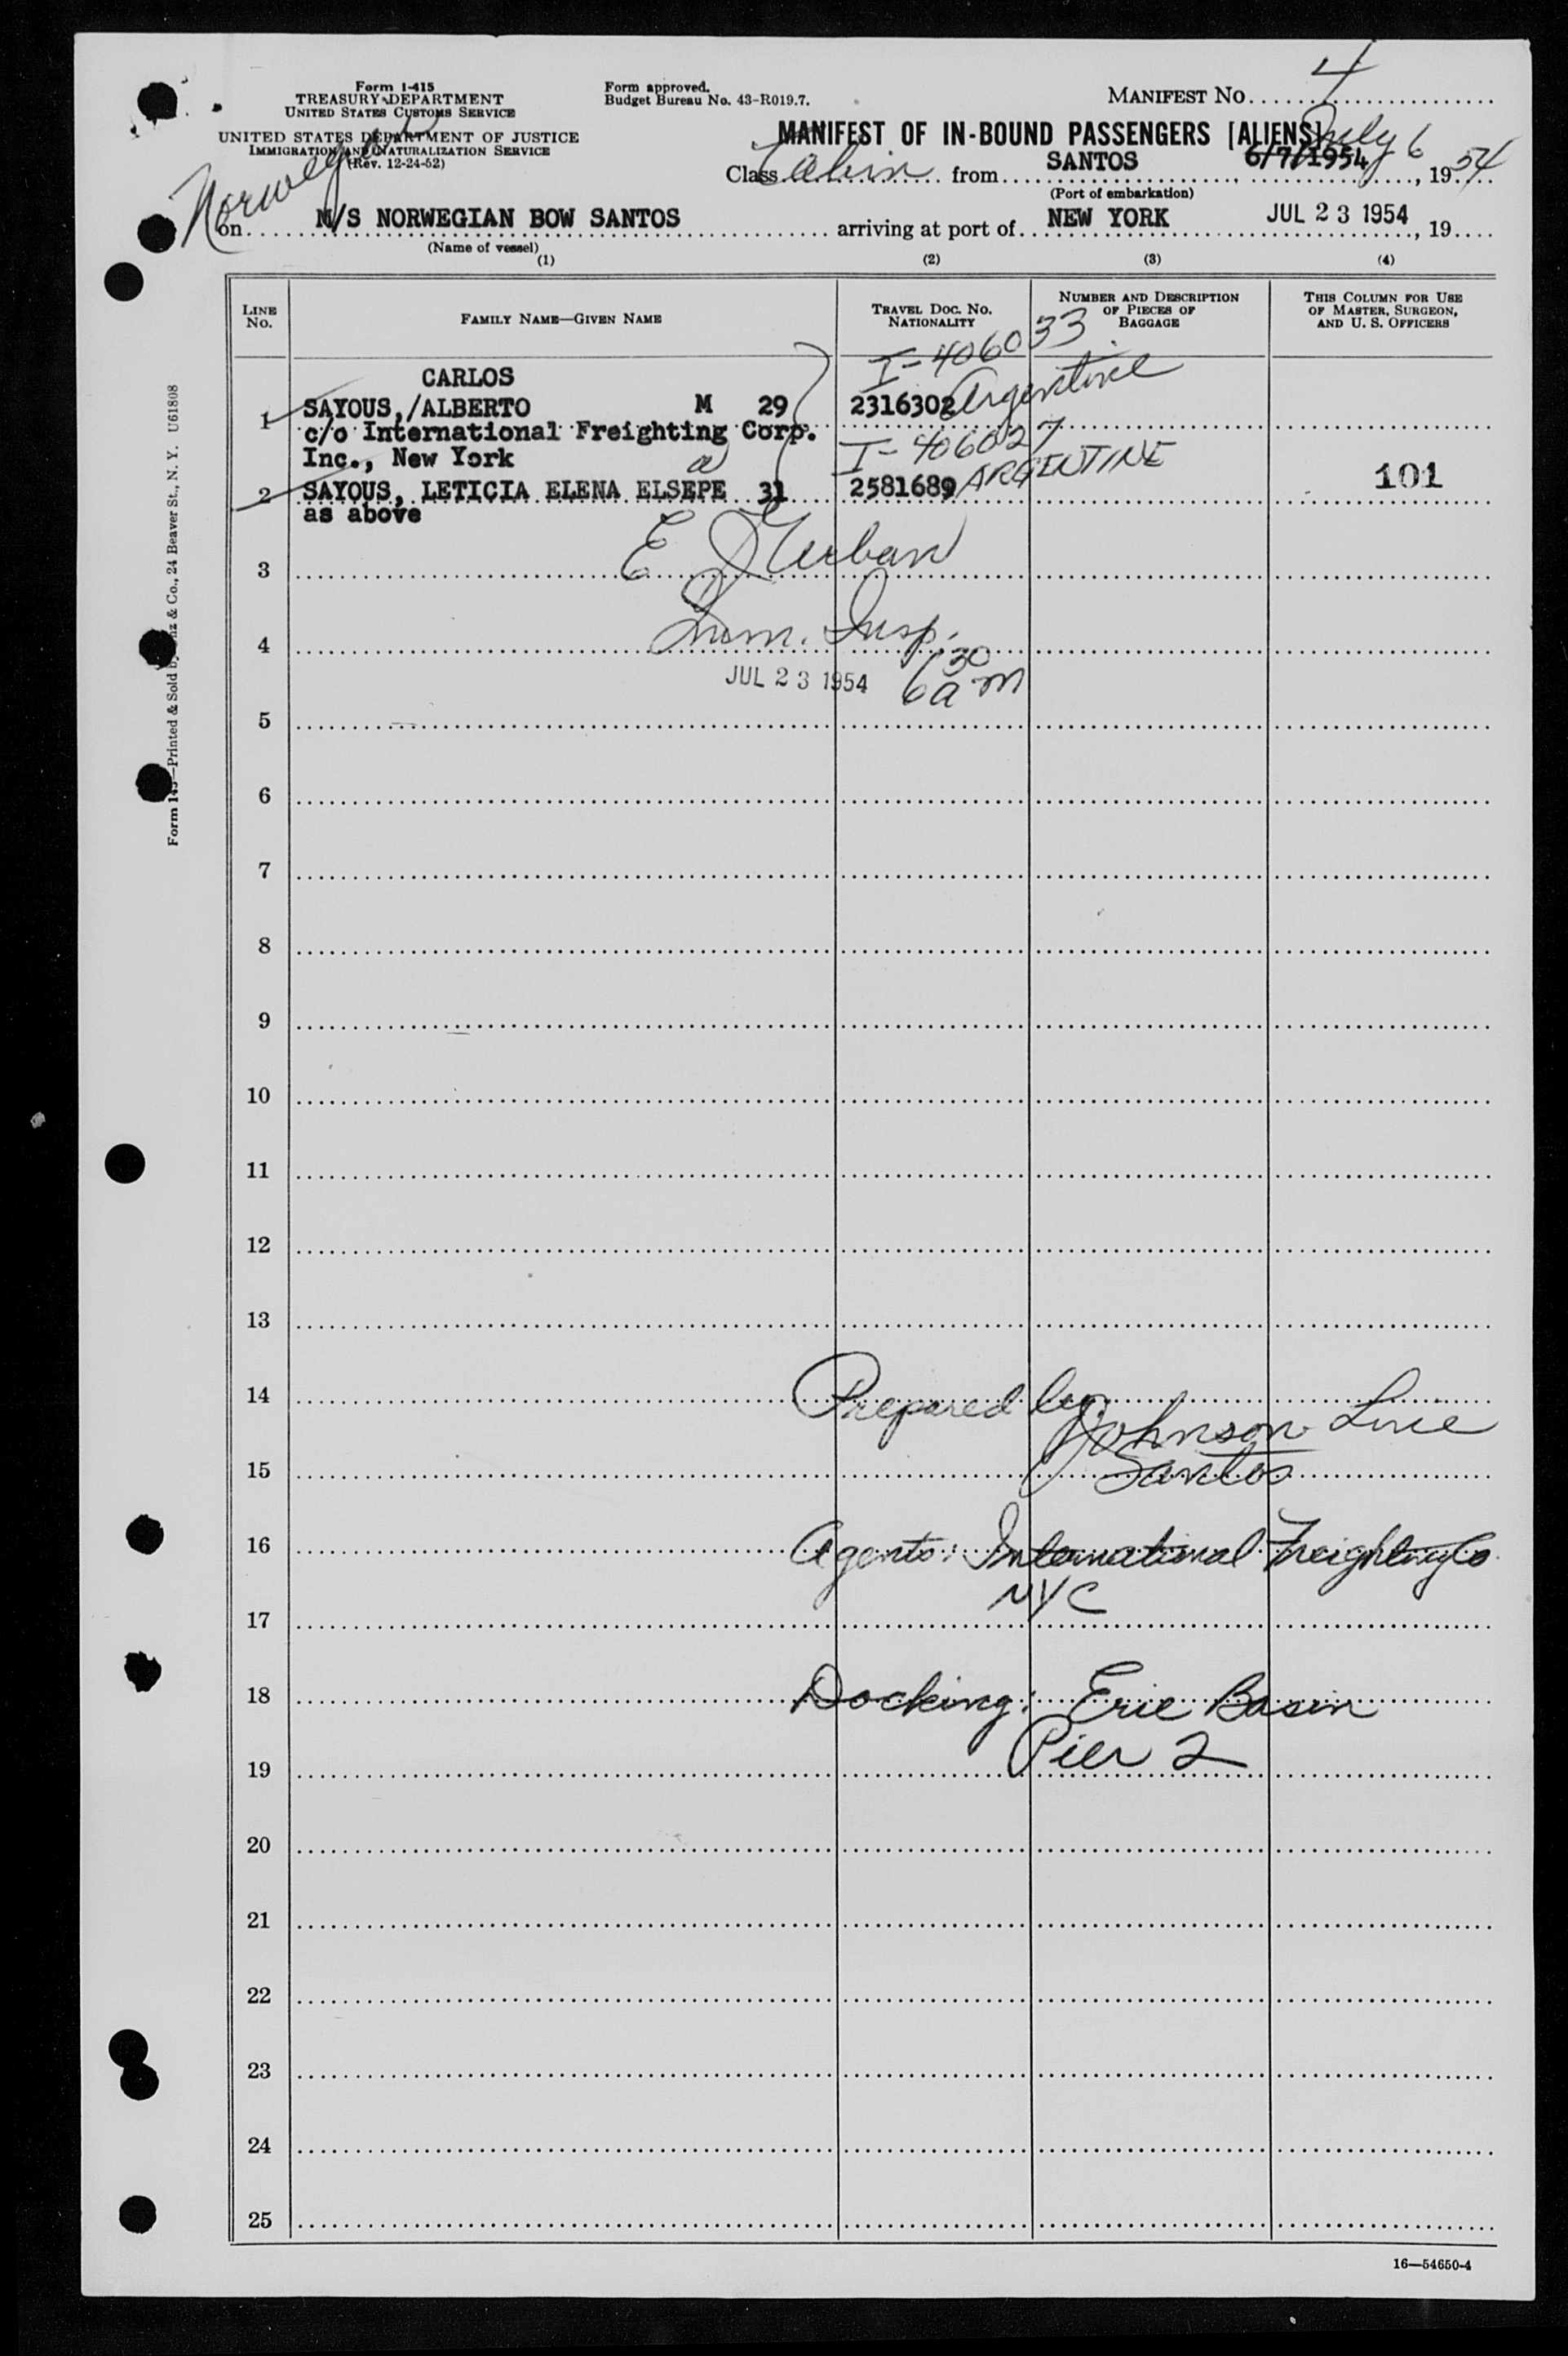 Form I-415
TREASURY DEPARTMENT
UNITED STATES CUSTOMS SERVICE
UNITED STATES DEPARTMENT OF JUSTICE
IMMIGRATION AND NATURALIZATION SERVICE
(Rev. 12-24-52)
Form approved.
Budget Bureau No. 43-R019.7.
MANIFEST No. 4
MANIFEST OF IN-BOUND PASSENGERS [ALIENS]
Class Cabin from SANTOS, 6/7/1954 July 6, 1954
(Port of embarkation)
Norwegian
on M/S NORWEGIAN BOW SANTOS arriving at port of NEW YORK JUL 23 1954, 19
(Name of vessel)
(1) (2) (3) (4)
LINE No.
FAMILY NAME—GIVEN NAME
TRAVEL DOC. NO. NATIONALITY
NUMBER AND DESCRIPTION OF PIECES OF BAGGAGE
THIS COLUMN FOR USE OF MASTER, SURGEON, AND U. S. OFFICERS
I-406033
CARLOS
1 SAYOUS,/ALBERTO M 29 2316302 Argentine
c/o International Freighting Corp.
Inc., New York I-406027
2 SAYOUS, LETICIA ELENA ELSEPE 31 2581689 ARGENTINE 101
as above
3 E J Urban
4 Imm. Insp.
JUL 23 1954 6 30 am
5
6
7
8
9
10
11
12
13
14 Prepared by
Johnson Line
15 Santos
16 Agents: International Freighting Co
NYC
17
18 Docking: Erie Basin
19 Pier 2
20
21
22
23
24
25
16—54650-4
& Co., 24 Beaver St., N. Y. U61808
—Printed & Sold